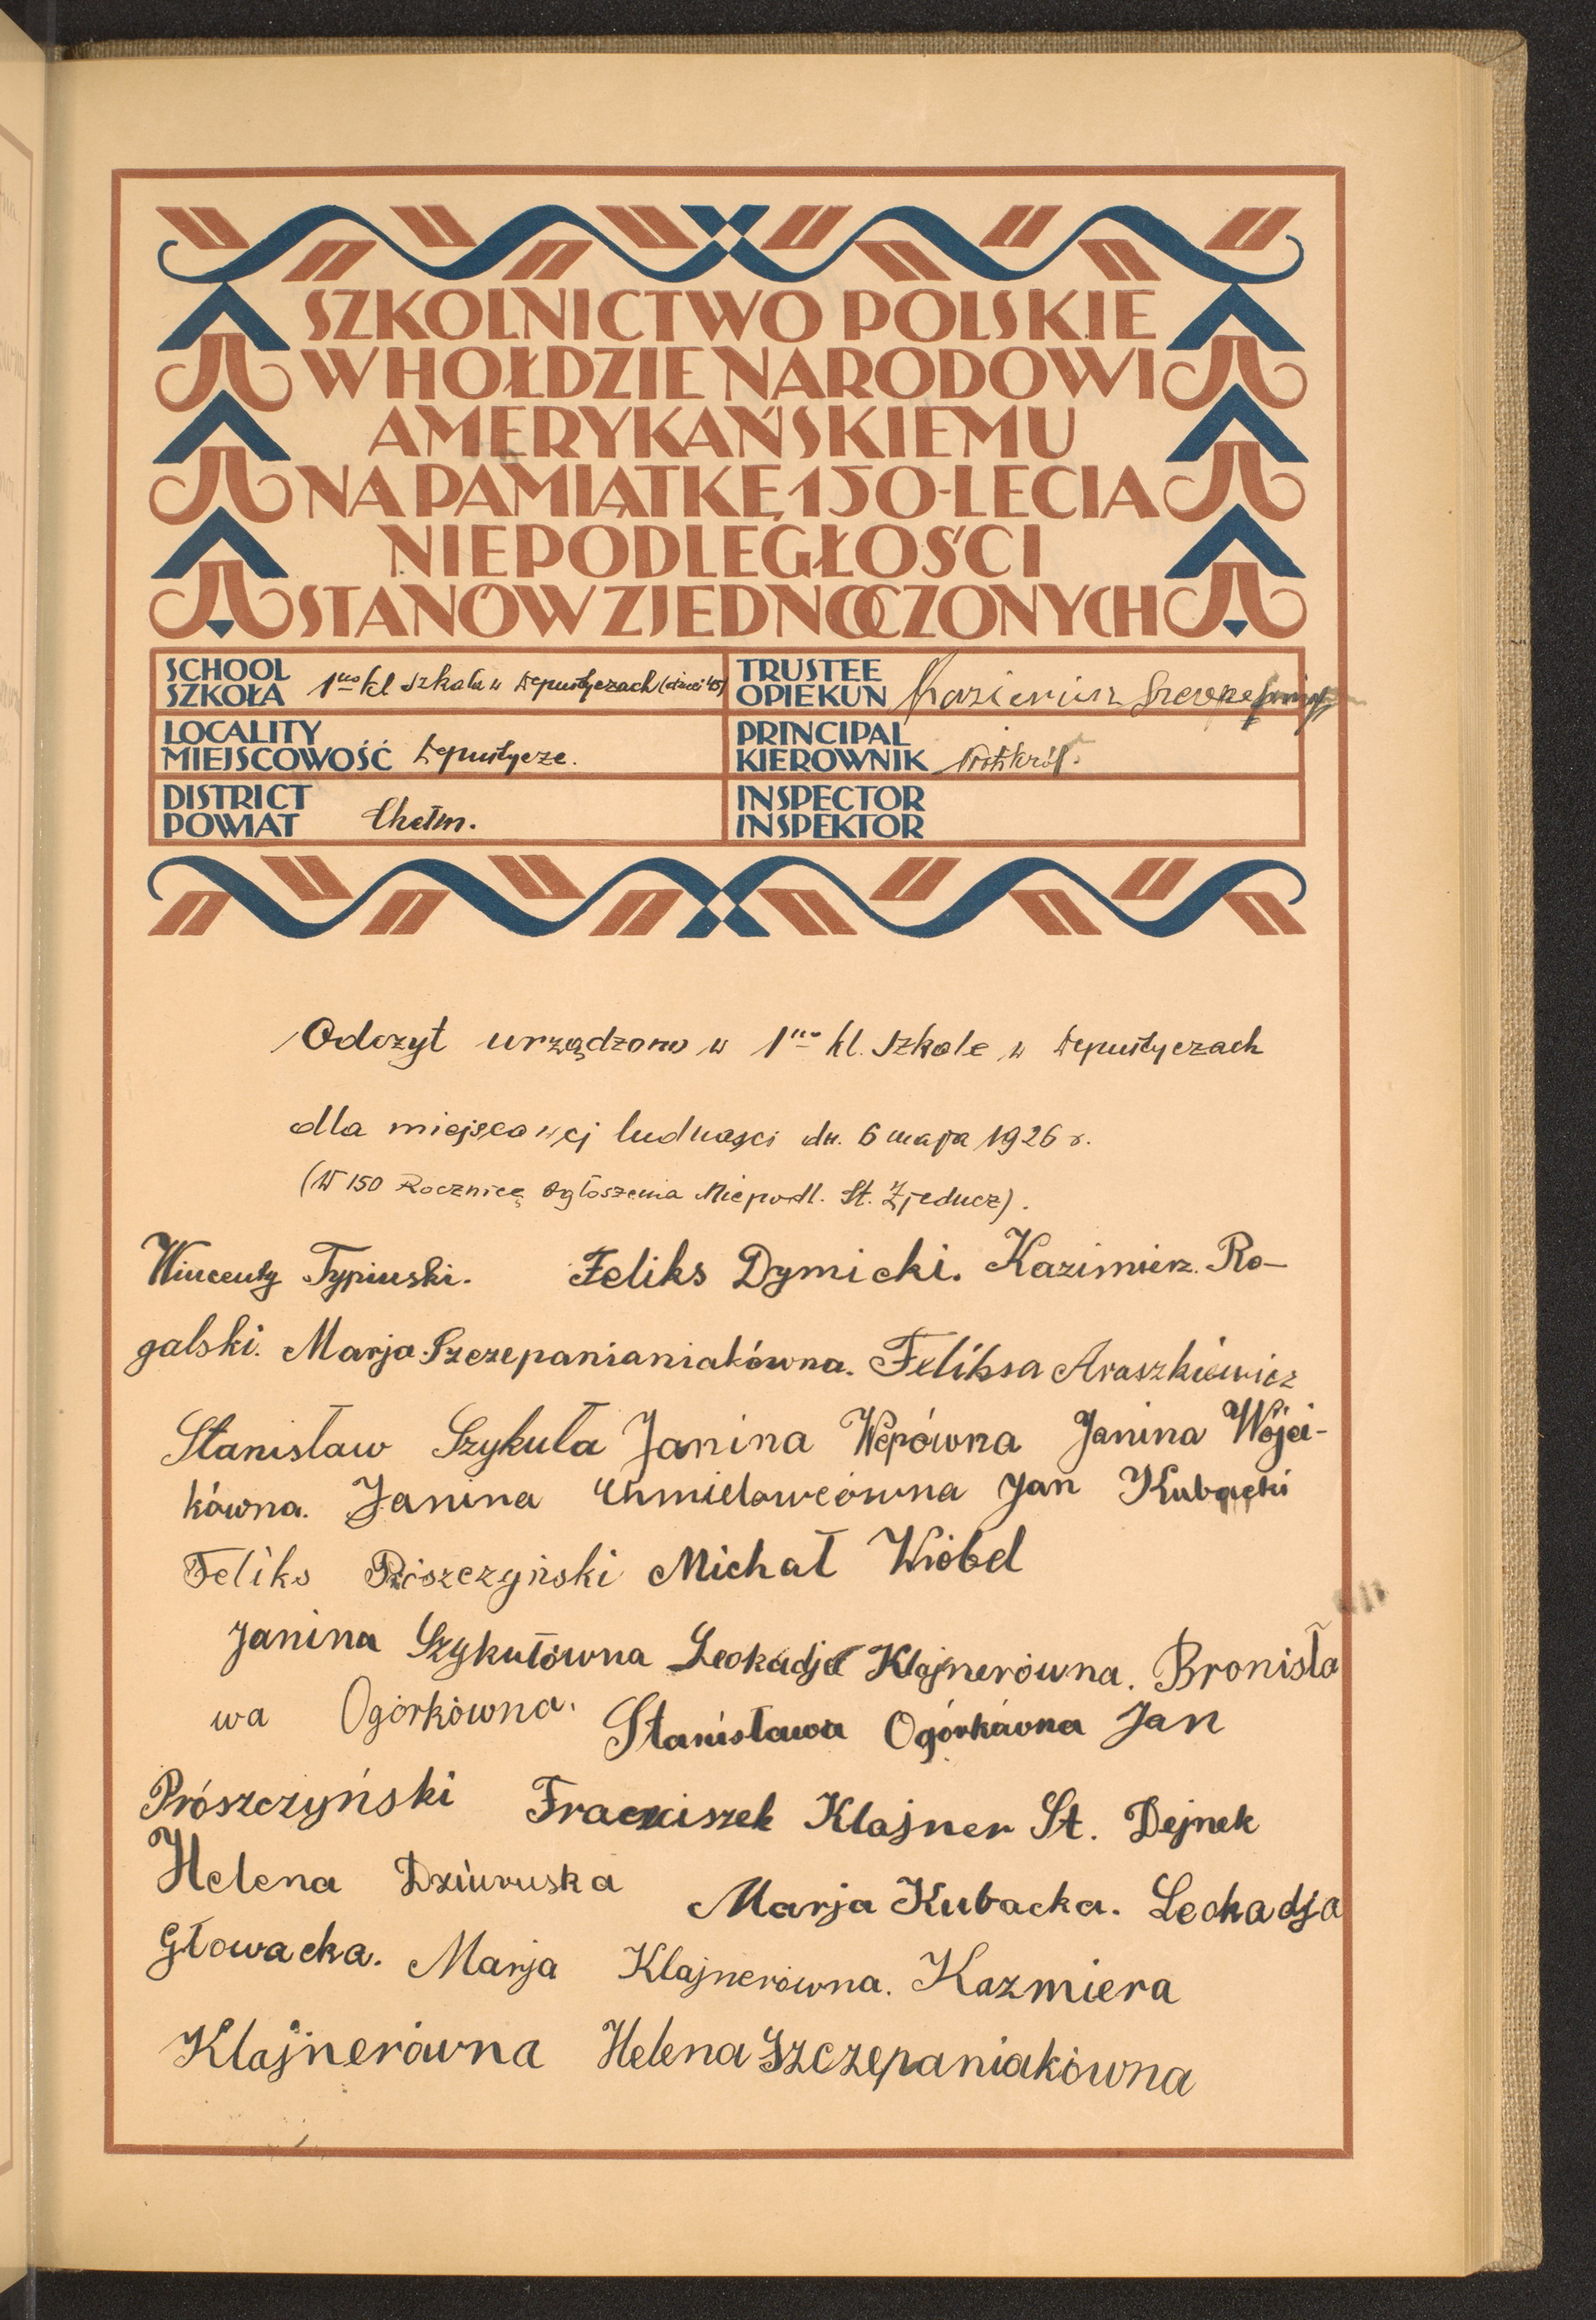 SZKOLNICTWO POLSKIE
W HOŁDZIE NARODOWI
AMERYKAŃSKIEMU
NA PAMIĄTKĘ 150-LECIA
NIEPODLEGŁOŚCI
STANÓW ZJEDNOCZONYCH
SCHOOL
SZKOŁA 1no kl Szkoła w Depułtyczach
LOCALITY
MIEJSCOWOŚĆ Depułtycze.
DISTRICT
POWIAT Chełm.
TRUSTEE
OPIEKUN Kazimierz
PRINCIPAL
KIEROWNIK
INSPECTOR
INSPEKTOR
Odczyt urządzono w 1no kl. Szkole w Depułtyczach
dla miejscowej ludności dn. 6 maja 1926 r.
(W 150 Rocznicę Ogłoszenia Niepodl. St. Zjednocz).
Wincenty Typiński. Feliks Dymicki. Kazimierz. Ro-
galski. Marja Szczepanianiakówna. Feliksa Araszkiewicz
Stanisław Szykuła Janina Wepówna Janina Wójci-
kówna. Janina Chmielowcówna Jan Kubacki
Feliks Prószczyński Michał Wróbel
Janina Szykułówna Leokadja Klajnerówna. Bronisła
wa Ogórkówna. Stanisława Ogórkówna Jan
Prószczyński Franciszek Klajner St. Dejnek
Helena Dziuruska Marja Kubacka. Leokadja
Głowacka. Marja Klajnerówna. Kazmiera
Klajnerówna Helena Szczepaniakówna